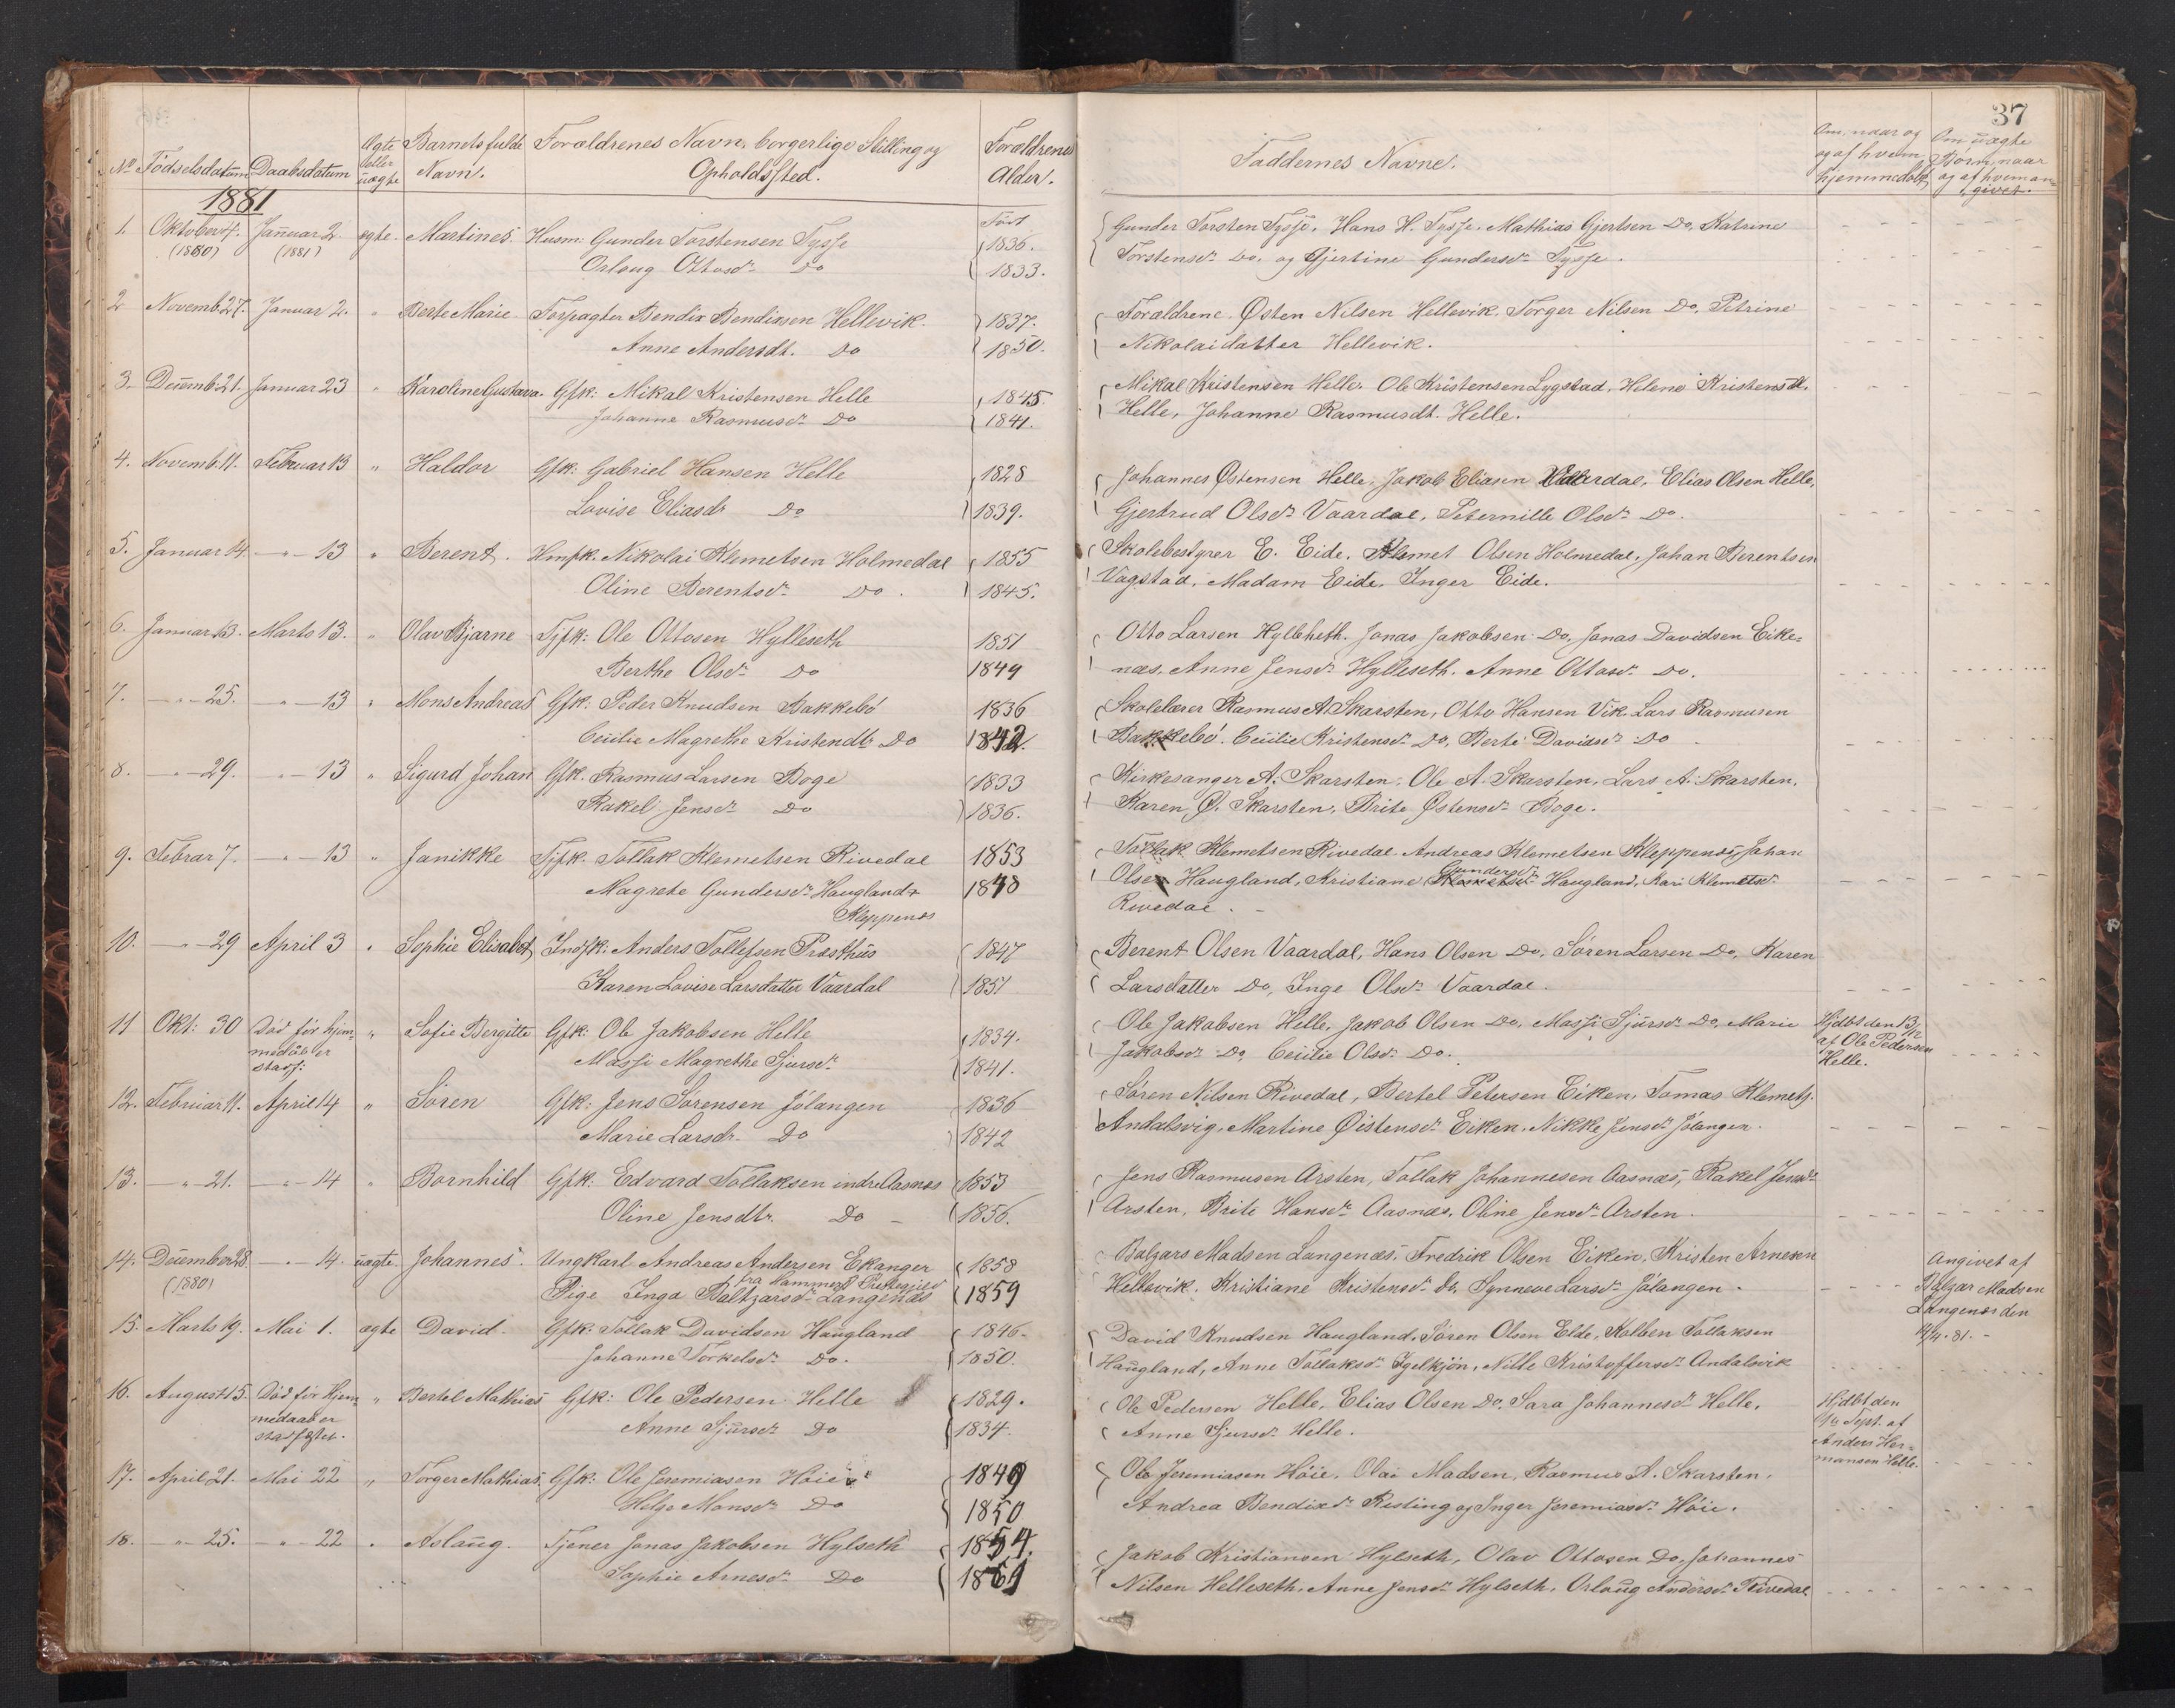 37
No Fødselsdatum Daabsdatum Ægte eller uægte Barnets fulde Navn. Forældrenes Navn, borgerlige Stilling og Opholdssted. Forældrenes Alder. Faddernes Navne. Om, naar og og af hvem hjemmedøbt Om uægte Børn, naar og af hvem angivet.
1881
1. Oktober 4. Januar 2. ægte. Martines. Husm: Gunder Torstensen Tysse Født 1836. Gunder Torsten Tysse, Hans H. Tysse, Mathias Gjertsen Do, Katrine
(1880) (1881) Orloug Ottosdr Do 1833. Torstensdr Do. og Gjertine Gundersdr Tysse.
2 Novemb. 27. Januar 2. " Berte Marie Forpagter Bendix Bendixsen Hellevik. 1837. Forældrene. Østen Nilsen Hellevik. Torger Nilsen Do, Petrine
Anne Andersdt. Do 1850. Nikolaidatter Hellevik.
3. Decemb. 21. Januar 23 " Karoline Gustava. Gfk: Mikal Kristensen Helle 1845. Mikal Kristensen Helle. Ole Kristensen Lygstad, Helene Kristensdt.
Johanne Rasmusdr Do 1841. Helle, Johanne Rasmusdt. Helle.
4. Novemb. 11. Februar 13 " Haldor Gfk: Gabriel Hansen Helle 1828 Johannes Østensen Helle, Jakob Eliasen Vaardal, Elias Olsen Helle,
Lovise Eliasdr Do 1839. Gjertrud Olsdr Vaardal, Peternille Olsdr Do.
5. Januar 14 —"— 13 " Berent. Hmfk. Nikolai Klemetsen Holmedal 1855 Skolebestyrer E. Eide. Klemet Olsen Holmedal, Johan Berentsen
Oline Berentsdr Do. 1845. Vagstad, Madam Eide, Inger Eide.
6. Januar 13. Marts 13. " Olav Bjarne Tjfk: Ole Ottosen Hylleseth 1851 Otto Larsen Hylleseth. Jonas Jakobsen Do, Jonas Davidsen Eike-
Berthe Olsdr Do 1849 næs, Anne Jensdr Hylleseth. Anne Ottosdr Do.
7. —"— 25. —"— 13 " Mons Andreas Gfk: Peder Knudsen Bakkebø 1836 Skolelærer Rasmus A. Skarsten, Otto Hansen Vik, Lars Rasmusen
Cecilie Magrethe Kristendtr Do 1842. Bakkebø. Cecilie Kristensdr Do, Berte Davidsdr Do
8. —"— 29. —"— 13 " Sigurd Johan Gfk. Rasmus Larsen Boge 1833 Kirkesanger A. Skarsten, Ole A. Skarsten, Lars A. Skarsten.
Rakel Jensdr Do 1836. Karen Ø. Skarsten, Brite Østensdr Boge.
9. Febrar 7. —"— 13 " Janikke Tjfk. Tollak Klemetsen Rivedal 1853 Tollak Klemetsen Rivedal. Andreas Klemetsen Kleppenes, Johan
Magrete Gundersdr Haugland 1848 Olsen Haugland, Kristiane Gundersdr Haugland, Kari Klemetsdr
Kleppenes Rivedal.
10. —"— 29 April 3 " Sophie Elisabet Indfk: Anders Tollefsen Præsthus 1847 Berent Olsen Vaardal, Hans Olsen Do. Søren Larsen Do, Karen
Karen Lovise Larsdatter Vaardal 1851 Larsdatter Do, Inge Olsdr Vaardal.
11 Okt: 30 Død før Hjemmedåb er stadf: " Sofie Bergitte Gfk: Ole Jakobsen Helle 1834. Ole Jakobsen Helle. Jakob Olsen Do. Massi Sjursdr Do, Marie Hjdbt den 13/12
Massi Magrethe Sjursdr 1841. Jakobsdr Do, Cecilie Olsdr Do. af Ole Pedersen Helle.
12. Februar 11. April 14 " Søren Gfk: Jens Sørensen Jølangen 1836 Søren Nilsen Rivedal, Bertel Petersen Eiken, Tomas Klemets.
Marie Larsdr. Do 1842 Andalsvig. Martine Øistensdr Eiken. Nikke Jensdr Jølangen.
13. —"— 21. —"— 14 " Bornhild Gfk: Edvard Tollaksen indre Aasnæs 1853 Jens Rasmusen Arsten, Tollak Johannesen Aasnæs, Rakel Jensdr
Oline Jensdtr. Do 1856. Arsten, Brite Hansdr Aasnæs, Oline Jensdr Arsten.
14. December 28 —"— 14. uægte. Johannes. Ungkarl Andreas Andersen Ekanger 1858 Balzars Madsen Langenæs, Fredrik Olsen Eiken, Kristen Arnesen Angivet af
(1880) fra Hammer Præstegjeld
Pige Inga Baltzarsdr Langenæs 1859 Hellevik, Kristiane Kristensdr Do. Synneve Larsdr Jølangen. Balzar Madsen Langenæs den 14/4. 81.
15. Marts 19. Mai 1. ægte David. Gfk: Tollak Davidsen Haugland 1846. David Knudsen Haugland, Søren Olsen Elde, Kolben Tollaksen
Johanne Torkelsdr Do. 1850. Haugland, Anne Tollaksdr Igelkjøn, Nille Kristoffersdr Andalsvik
16. August 15. Død før Hjemmedaab er stadfæstet. " Bertel Mathias Gfk: Ole Pedersen Helle 1829. Ole Pedersen Helle, Elias Olsen Do. Sara Johannesdr Helle, Hjdbt den
Anne Sjursdr Do 1834. Anne Sjursdr Helle. Sept. af Anders Hermansen Helle.
17. April 21. Mai 22 " Torger Mathias. Gfk: Ole Jeremiasen Høie 1849 Ole Jeremiasen Høie. Olai Madsen, Rasmus A. Skarsten,
Helge Monsdr Do 1850 Andrea Bendixdr Risting og Inger Jeremiasdr Høie.
18. —"— 25. —"— 22 " Aslaug. Tjener Jonas Jakobsen Hylseth 1854. Jakob Kristiansen Hylseth, Olav Ottosen Do, Johannes
Sophie Arnesdr Do 1861 Nilsen Helleseth. Anne Jensdr Hylseth. Orlaug Andersdr Rivedal